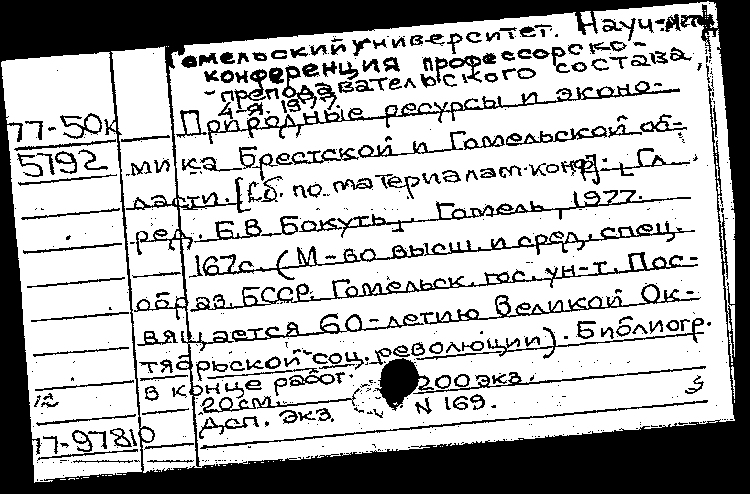 Гомельский университет. Науч.
конференция профессорско-
-преподавательского состава,
4-я. 1977.
77-50к Природные ресурсы и эконо-
5792 мика Брестской и Гомельской об-
ласти. [Сб. по материалам конф]. Гл.
ред. Б.В. Бокуть. Гомель, 1977.
167с. (М-во высш. и сред. спец.
образ. БССР. Гомельск. гос. ун-т. Пос-
вящается 60-летию Великой Ок-
тябрьской соц. революции). Библиогр.
в конце работ. 200 экз.
12 20см. N 169.
Доп. экз.
77-97810